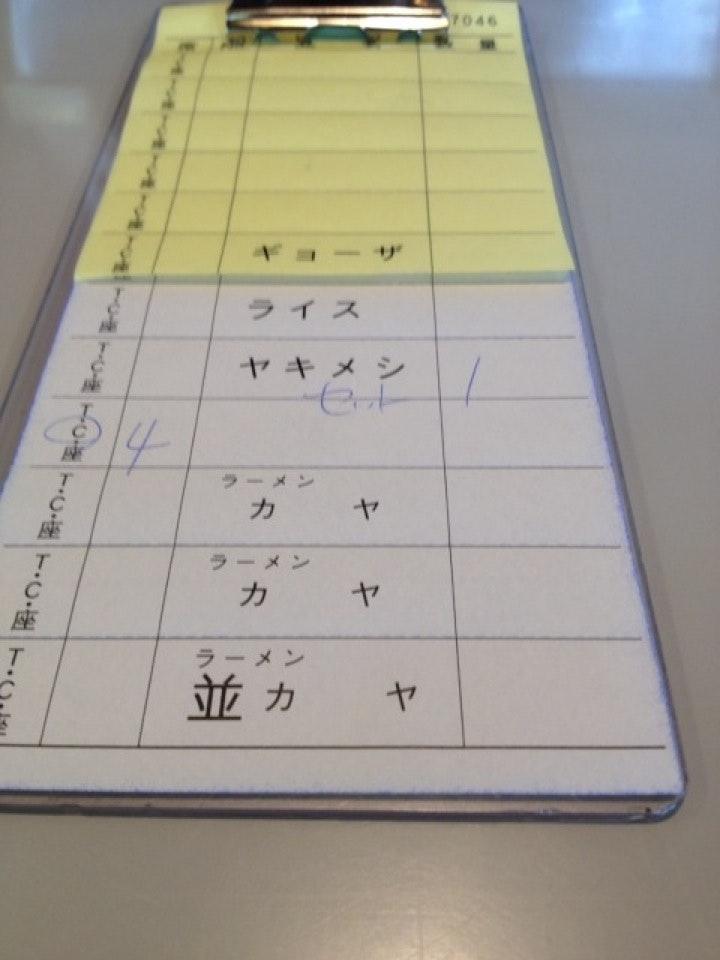 7046
数 量
T・C・座
T・C・座
T・C・座
T・C・座
T・C・座
T・C・座 ギョーザ
T・C・座 ライス
T・C・座 ヤキメシ 1
セット
T・C・座 4
ラーメン
T・C・座 カ ヤ
ラーメン
T・C・座 カ ヤ
ラーメン
T・C・座 並 カ ヤ